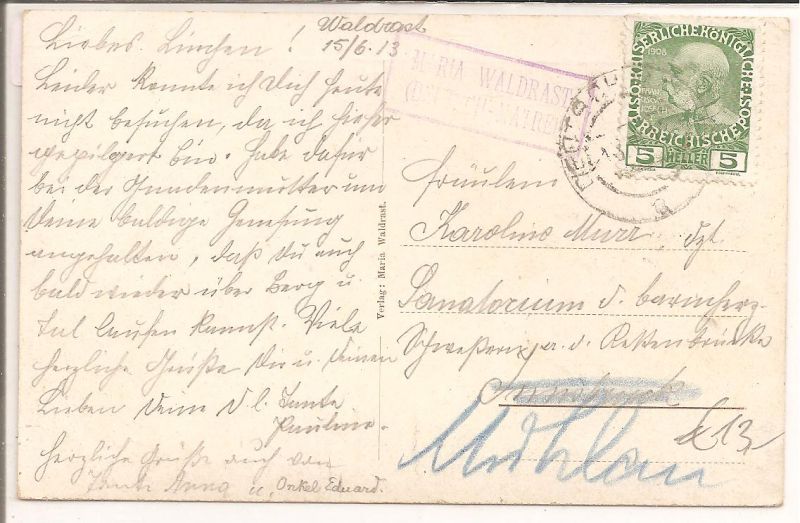 Waldrast
15/6.13
Liebes Linchen!
Leider konnte ich Dich heute
nicht besuchen, da ich hieher
gepilgert bin. Habe dafür
bei der Gnadenmutter um
Deine baldige Genesung
angehalten, daß Du auch
bald wieder über Berg u.
Tal laufen kannst. Viele
herzliche Grüße Dir u. Deinen
Lieben Deine D. l. Tante
Pauline.
Herzliche Grüße auch von
Tante Anna u. Onkel Eduard.
Verlag: Maria Waldrast.
MARIA WALDRAST
(DEUTSCH-MATREI)
1908
KAISERLICHEKÖNIGLICHE
ÖSTERREICHISCHEPOST
5 HELLER 5
Fräulein
Karoline Murr, dzt
Sanatorium d. barmherz.
Schwestern a. d. Kettenbrücke
Innsbruck
Mühlau
£13,-